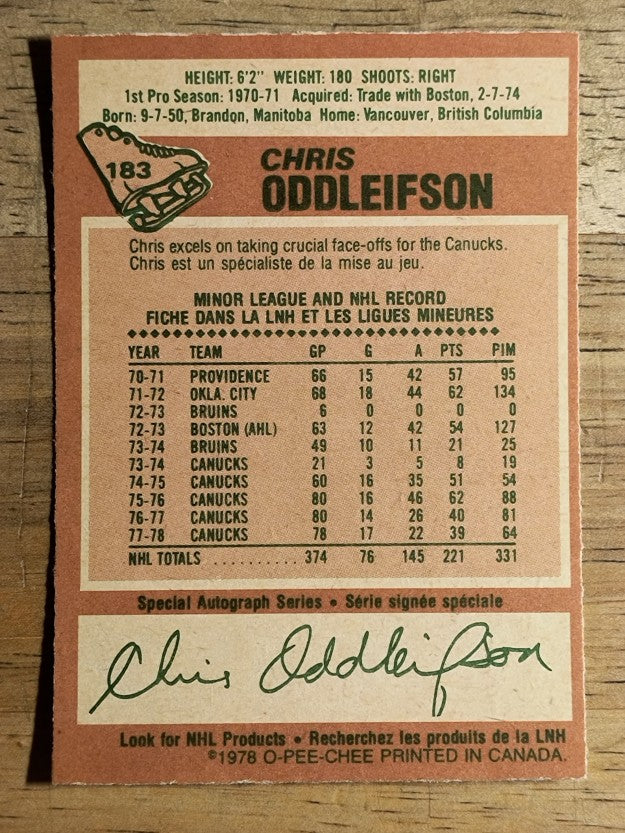 HEIGHT: 6'2" WEIGHT: 180 SHOOTS: RIGHT
1st Pro Season: 1970-71 Acquired: Trade with Boston, 2-7-74
Born: 9-7-50, Brandon, Manitoba Home: Vancouver, British Columbia
183
CHRIS
ODDLEIFSON
Chris excels on taking crucial face-offs for the Canucks.
Chris est un spécialiste de la mise au jeu.
MINOR LEAGUE AND NHL RECORD
FICHE DANS LA LNH ET LES LIGUES MINEURES
YEAR TEAM GP G A PTS PIM
70-71 PROVIDENCE 66 15 42 57 95
71-72 OKLA. CITY 68 18 44 62 134
72-73 BRUINS 6 0 0 0 0
72-73 BOSTON (AHL) 63 12 42 54 127
73-74 BRUINS 49 10 11 21 25
73-74 CANUCKS 21 3 5 8 19
74-75 CANUCKS 60 16 35 51 54
75-76 CANUCKS 80 16 46 62 88
76-77 CANUCKS 80 14 26 40 81
77-78 CANUCKS 78 17 22 39 64
NHL TOTALS .......... 374 76 145 221 331
Special Autograph Series • Série signée spéciale
Chris Oddleifson
Look for NHL Products • Recherchez les produits de la LNH
©1978 O-PEE-CHEE PRINTED IN CANADA.